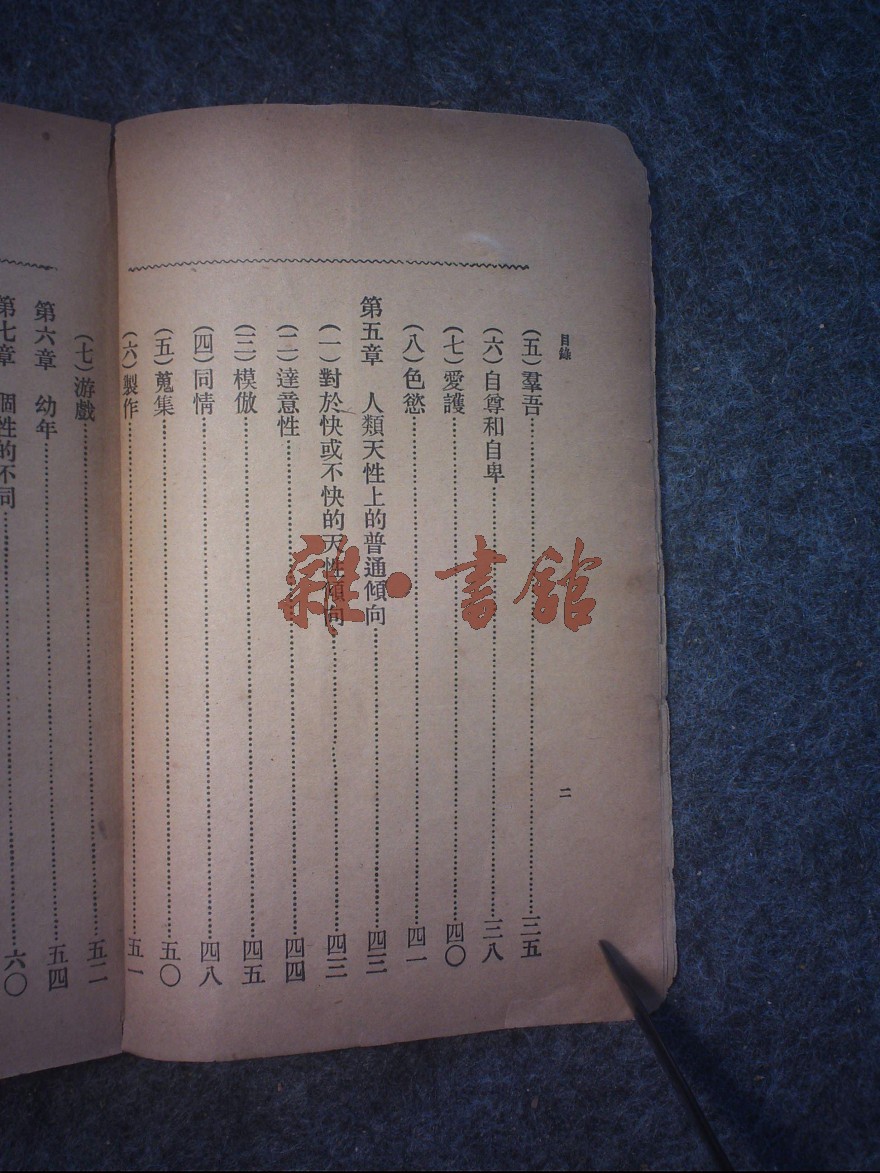 目錄
二
(五)羣吾……三五
(六)自尊和自卑……三八
(七)愛護……四〇
(八)色慾……四一
第五章 人類天性上的普通傾向……四三
(一)對於快或不快的天性傾向……四三
(二)達意性……四四
(三)模倣……四五
(四)同情……四八
(五)蒐集……五〇
(六)製作……五一
(七)游戲……五二
第六章 幼年……五四
第七章 個性的不同……六〇
雜·書館